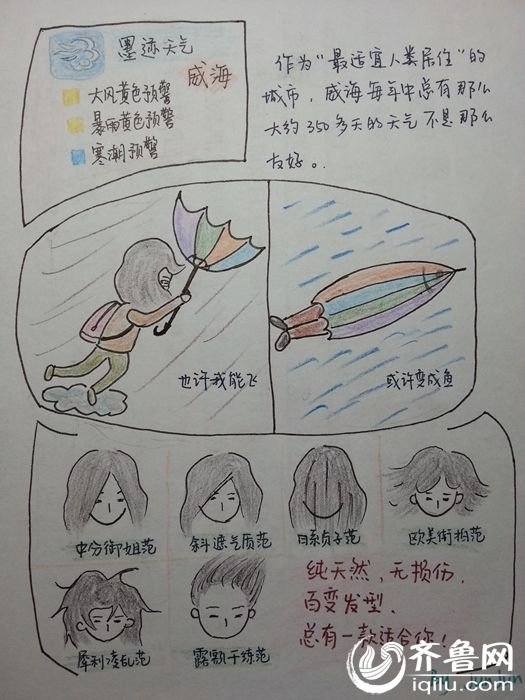 墨迹天气
威海
大风黄色预警
暴雨黄色预警
寒潮预警
作为“最适宜人类居住”的
城市，威海每年中总有那么
大约350多天的天气不是那么
友好。
也许我能飞
或许变成鱼
中分御姐范
斜遮气质范
日系贞子范
欧美街拍范
犀利凌乱范
露额干练范
纯天然，无损伤，
百变发型，
总有一款适合你！
齐鲁网
iqilu.com